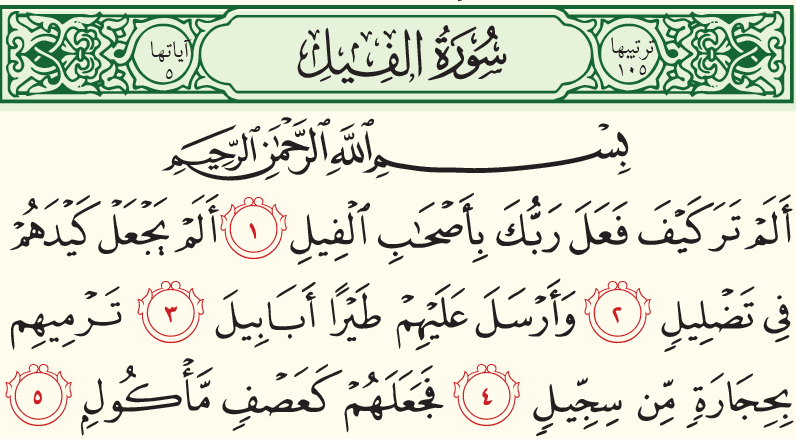 ترتيبها ١٠٥
سُورَةُ الفِيلِ
آياتها ٥
بِسْمِ ٱللَّهِ ٱلرَّحْمَٰنِ ٱلرَّحِيمِ
أَلَمْ تَرَ كَيْفَ فَعَلَ رَبُّكَ بِأَصْحَٰبِ ٱلْفِيلِ ١ أَلَمْ يَجْعَلْ كَيْدَهُمْ
فِي تَضْلِيلٍ ٢ وَأَرْسَلَ عَلَيْهِمْ طَيْرًا أَبَابِيلَ ٣ تَرْمِيهِم
بِحِجَارَةٍ مِّن سِجِّيلٍ ٤ فَجَعَلَهُمْ كَعَصْفٍ مَّأْكُولٍ ٥